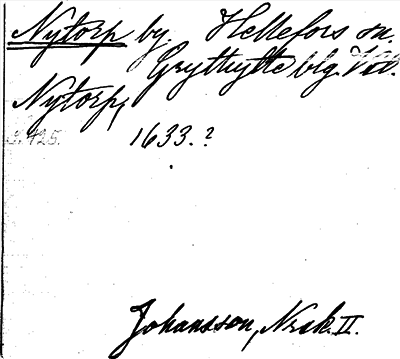 Nytorp by. Hellefors sn.
Grythytte blg. Vstl.
Nytorp,
s. 425.
1633.?
Johansson, Nrsk. II.